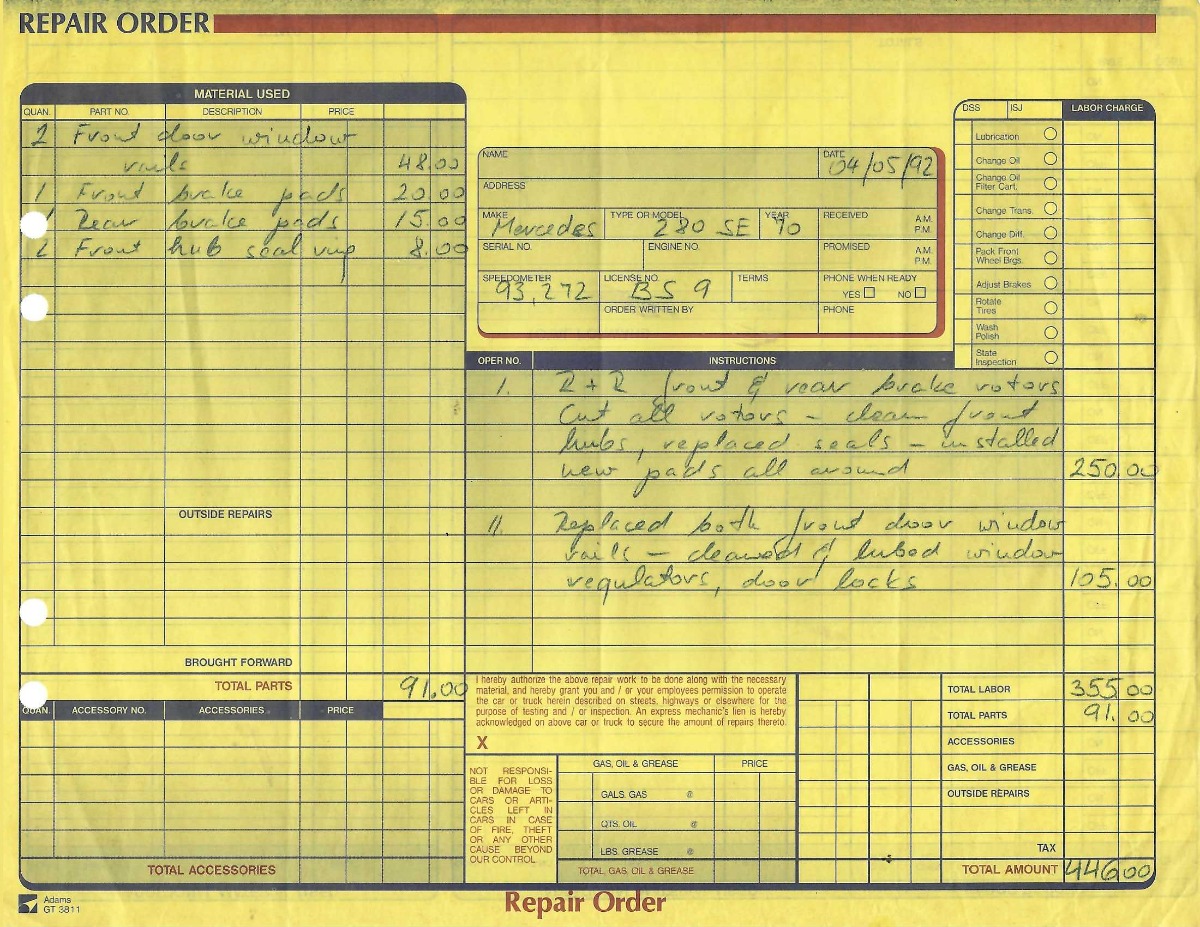 REPAIR ORDER
MATERIAL USED
QUAN. PART NO. DESCRIPTION PRICE
2 Front door window
rails 48.00
1 Front brake pads 20.00
1 Rear brake pads 15.00
2 Front hub seal ring 8.00
OUTSIDE REPAIRS
BROUGHT FORWARD
TOTAL PARTS 91.00
QUAN. ACCESSORY NO. ACCESSORIES PRICE
TOTAL ACCESSORIES
NAME
DATE 04/05/92
ADDRESS
MAKE Mercedes TYPE OR MODEL 280 SE YEAR 70 RECEIVED A.M. P.M.
SERIAL NO. ENGINE NO. PROMISED A.M. P.M.
SPEEDOMETER 93,272 LICENSE NO. BS 9 TERMS PHONE WHEN READY
YES NO
ORDER WRITTEN BY PHONE
DSS ISJ LABOR CHARGE
Lubrication
Change Oil
Change Oil
Filter Cart.
Change Trans.
Change Diff.
Pack Front
Wheel Brgs.
Adjust Brakes
Rotate
Tires
Wash
Polish
State
Inspection
OPER NO. INSTRUCTIONS
I. R + R front & rear brake rotors
Cut all rotors - clean front
hubs, replaced seals - installed
new pads all around 250.00
II. Replaced both front door window
rails - cleaned & lubed window
regulators, door locks 105.00
I hereby authorize the above repair work to be done along with the necessary
material, and hereby grant you and / or your employees permission to operate
the car or truck herein described on streets, highways or elsewhere for the
purpose of testing and / or inspection. An express mechanic's lien is hereby
acknowledged on above car or truck to secure the amount of repairs thereto.
X
NOT RESPONSI-
BLE FOR LOSS
OR DAMAGE TO
CARS OR ARTI-
CLES LEFT IN
CARS IN CASE
OF FIRE, THEFT
OR ANY OTHER
CAUSE BEYOND
OUR CONTROL
GAS, OIL & GREASE PRICE
GALS. GAS @
QTS. OIL @
LBS. GREASE @
TOTAL GAS, OIL & GREASE
TOTAL LABOR 355.00
TOTAL PARTS 91.00
ACCESSORIES
GAS, OIL & GREASE
OUTSIDE REPAIRS
TAX
TOTAL AMOUNT 446.00
Adams
GT 3811
Repair Order